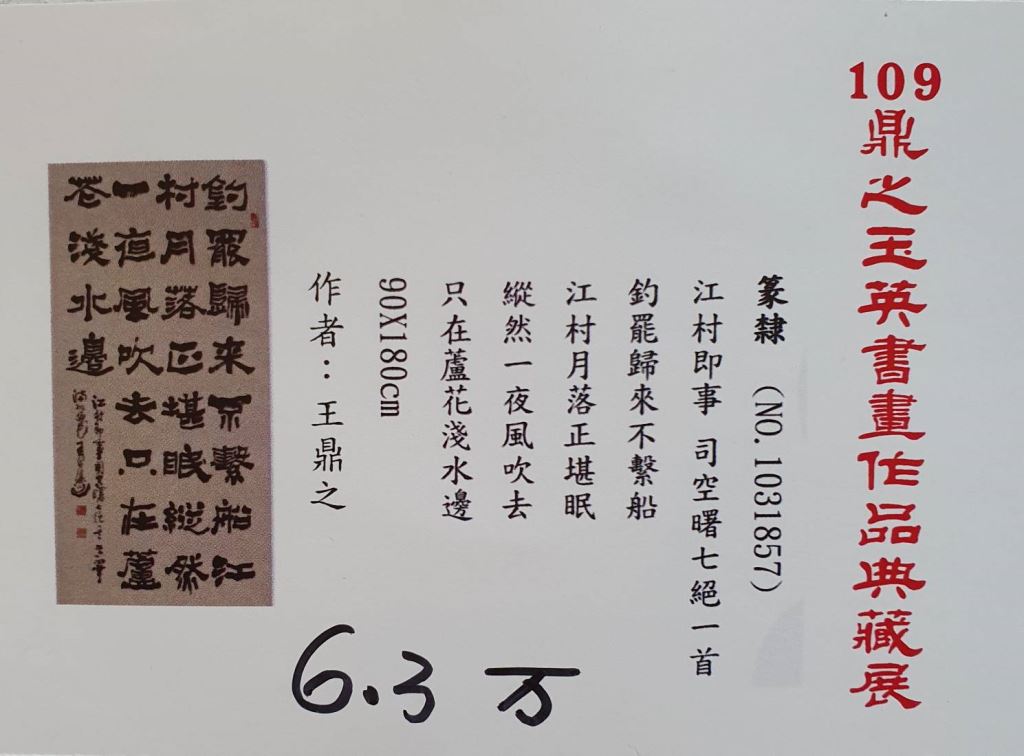 109
鼎之玉英書畫作品典藏展
篆隸 (NO.1031857)
江村即事 司空曙七絕一首
釣罷歸來不繫船
江村月落正堪眠
縱然一夜風吹去
只在蘆花淺水邊
90X180cm
作者：王鼎之
釣罷歸來不繫船江
村月落正堪眠縱然
一夜風吹去只在蘆
花淺水邊
6.3 万